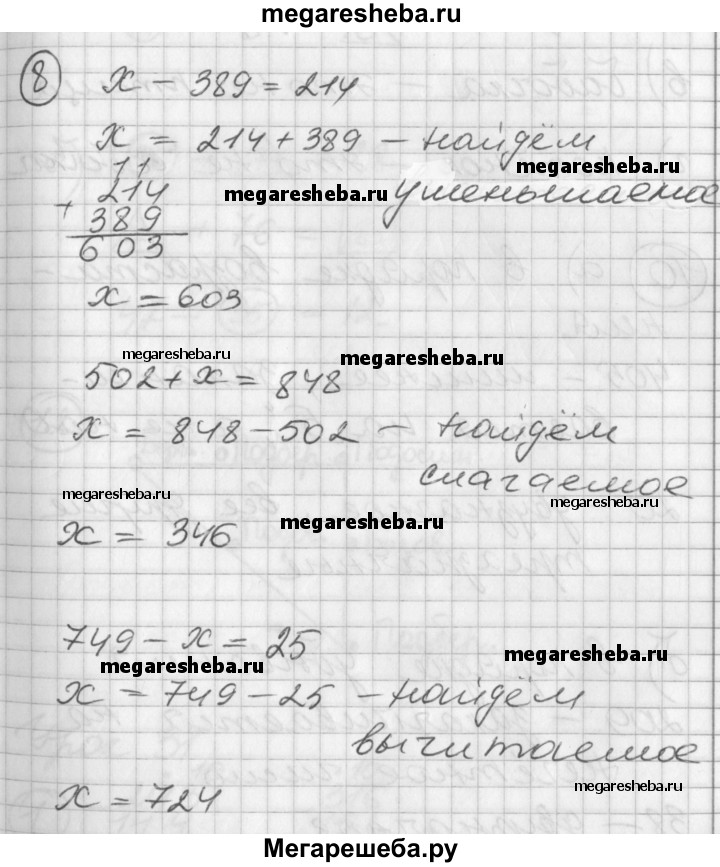 megaresheba.ru
8 x - 389 = 214
x = 214 + 389 - найдём
megaresheba.ru
уменьшаемое
megaresheba.ru
11
+ 214
389
603
x = 603
megaresheba.ru
megaresheba.ru
502 + x = 848
x = 848 - 502 - найдём
слагаемое
megaresheba.ru
megaresheba.ru
x = 346
megaresheba.ru
749 - x = 25
megaresheba.ru
megaresheba.ru
x = 749 - 25 - найдём
вычитаемое
x = 724
megaresheba.ru
Мегарешеба.ру